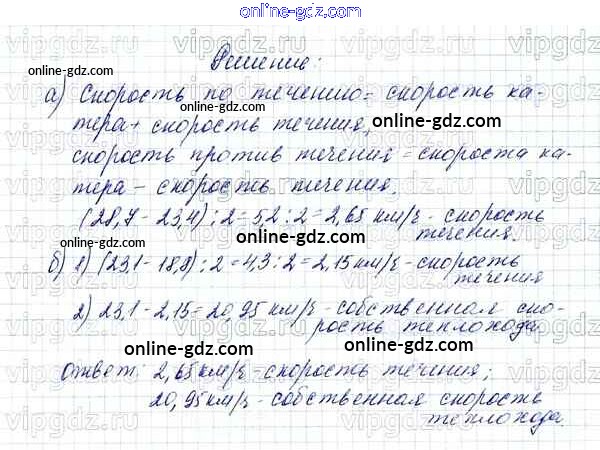 online-gdz.com
Решение:
а) Скорость по течению = скорость ка-
тера + скорость течения,
скорость против течения = скорость ка-
тера - скорость течения.
(28,7 - 23,4) : 2 = 5,2 : 2 = 2,65 км/ч - скорость
течения.
б) 1) (23,1 - 18,8) : 2 = 4,3 : 2 = 2,15 км/ч - скорость
течения
2) 23,1 - 2,15 = 20,95 км/ч - собственная ско-
рость теплохода
Ответ: 2,65 км/ч - скорость течения;
20,95 км/ч - собственная скорость
теплохода.
online-gdz.com
online-gdz.com
online-gdz.com
online-gdz.com
online-gdz.com
online-gdz.com
online-gdz.com
online-gdz.com